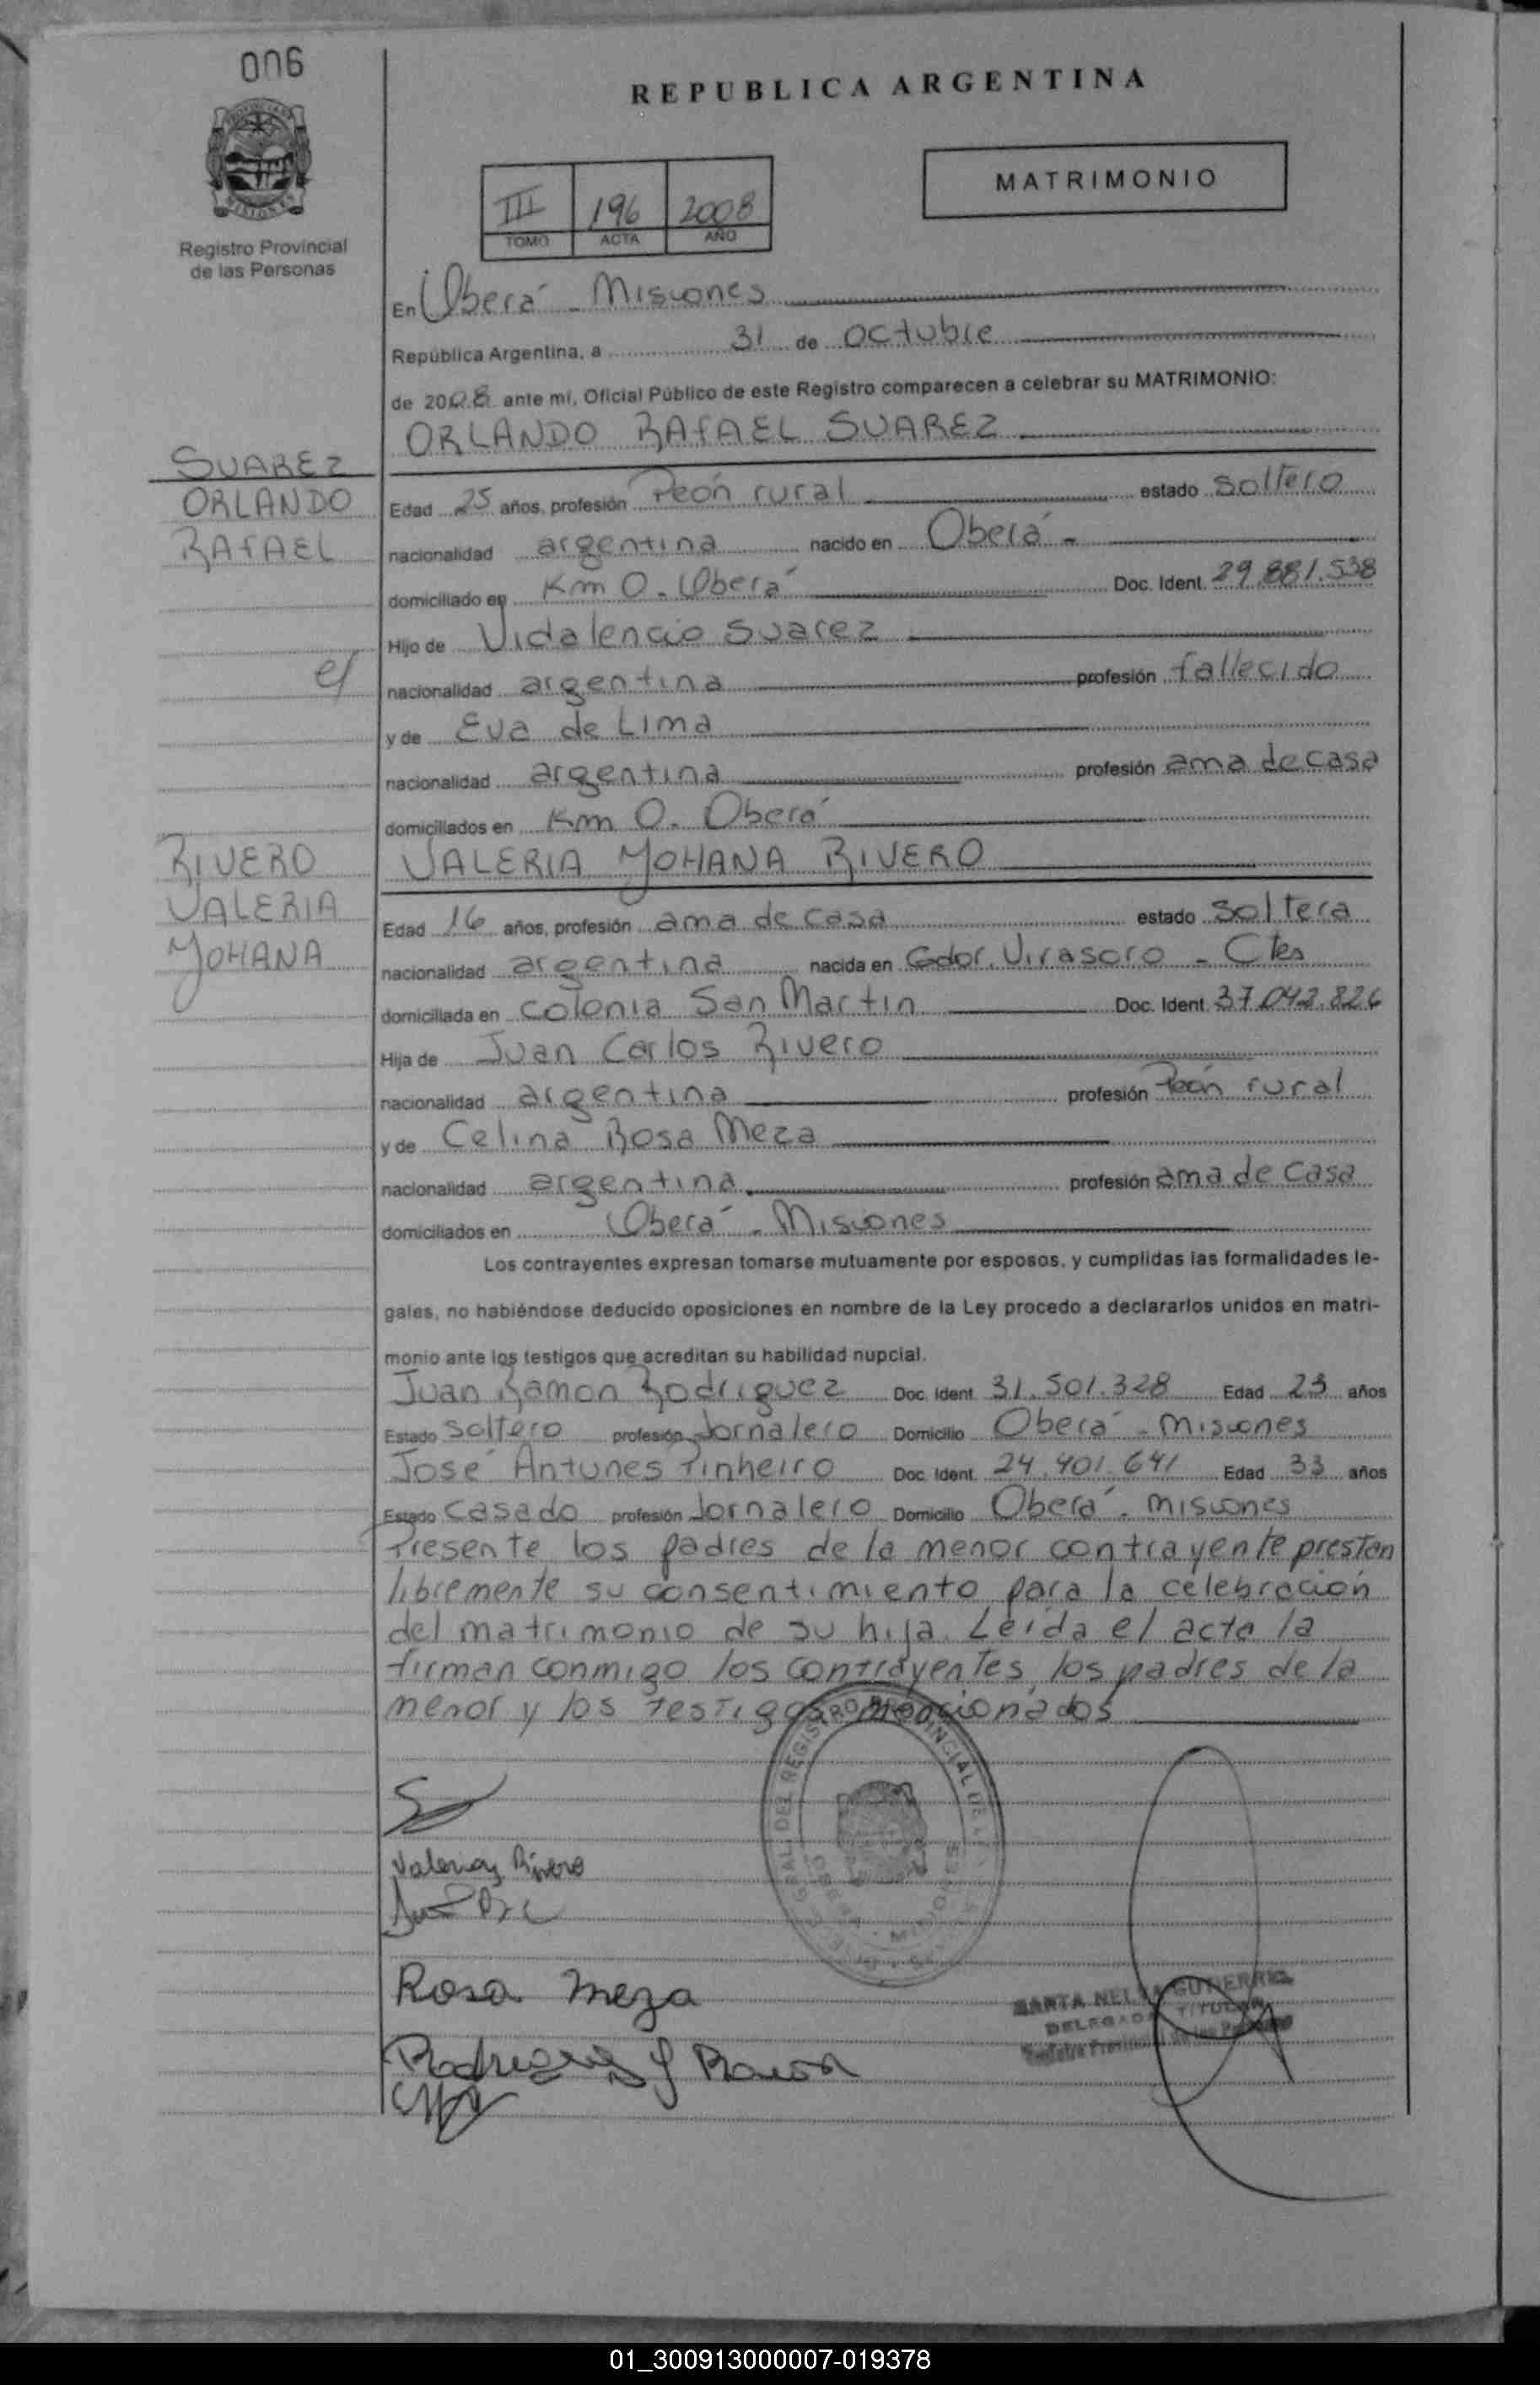 006
REPUBLICA ARGENTINA
MATRIMONIO
III 196 2008
TOMO ACTA AÑO
Registro Provincial
de las Personas
En Oberá - Misiones
República Argentina, a 31 de octubre
de 2008 ante mi, Oficial Público de este Registro comparecen a celebrar su MATRIMONIO:
ORLANDO RAFAEL SUAREZ
SUAREZ
ORLANDO
RAFAEL
Edad 25 años, profesión Peón rural estado soltero
nacionalidad argentina nacido en Oberá -
domiciliado en Km 0 - Oberá Doc. Ident. 29.881.538
Hijo de Vidalencio Suarez
nacionalidad argentina profesión fallecido
y de Eva de Lima
nacionalidad argentina profesión ama de casa
domiciliados en Km 0 - Oberá
RIVERO
VALERIA
YOHANA
VALERIA YOHANA RIVERO
Edad 16 años, profesión ama de casa estado soltera
nacionalidad argentina nacida en Gdor. Virasoro - Ctes
domiciliada en colonia San Martin Doc. Ident. 37.042.826
Hija de Juan Carlos Rivero
nacionalidad argentina profesión Peón rural
y de Celina Rosa Meza
nacionalidad argentina profesión ama de casa
domiciliados en Oberá - Misiones
Los contrayentes expresan tomarse mutuamente por esposos, y cumplidas las formalidades le-
gales, no habiéndose deducido oposiciones en nombre de la Ley procedo a declararlos unidos en matri-
monio ante los testigos que acreditan su habilidad nupcial.
Juan Ramon Rodriguez Doc. Ident. 31.501.328 Edad 23 años
Estado soltero profesión Jornalero Domicilio Oberá - Misiones
José Antunes Pinheiro Doc. Ident. 24.401.641 Edad 33 años
Estado casado profesión Jornalero Domicilio Oberá - misiones
Presente los padres de la menor contrayente prestan
libremente su consentimiento para la celebración
del matrimonio de su hija. Leída el acta la
firman conmigo los contrayentes, los padres de la
menor y los testigos mencionados
Valeria Rivero
Rosa Meza
Rodriguez J Ramon
MARTA NELLA GUTIERREZ
DELEGADA TITULAR
Registro Provincial de las Personas
01_300913000007-019378